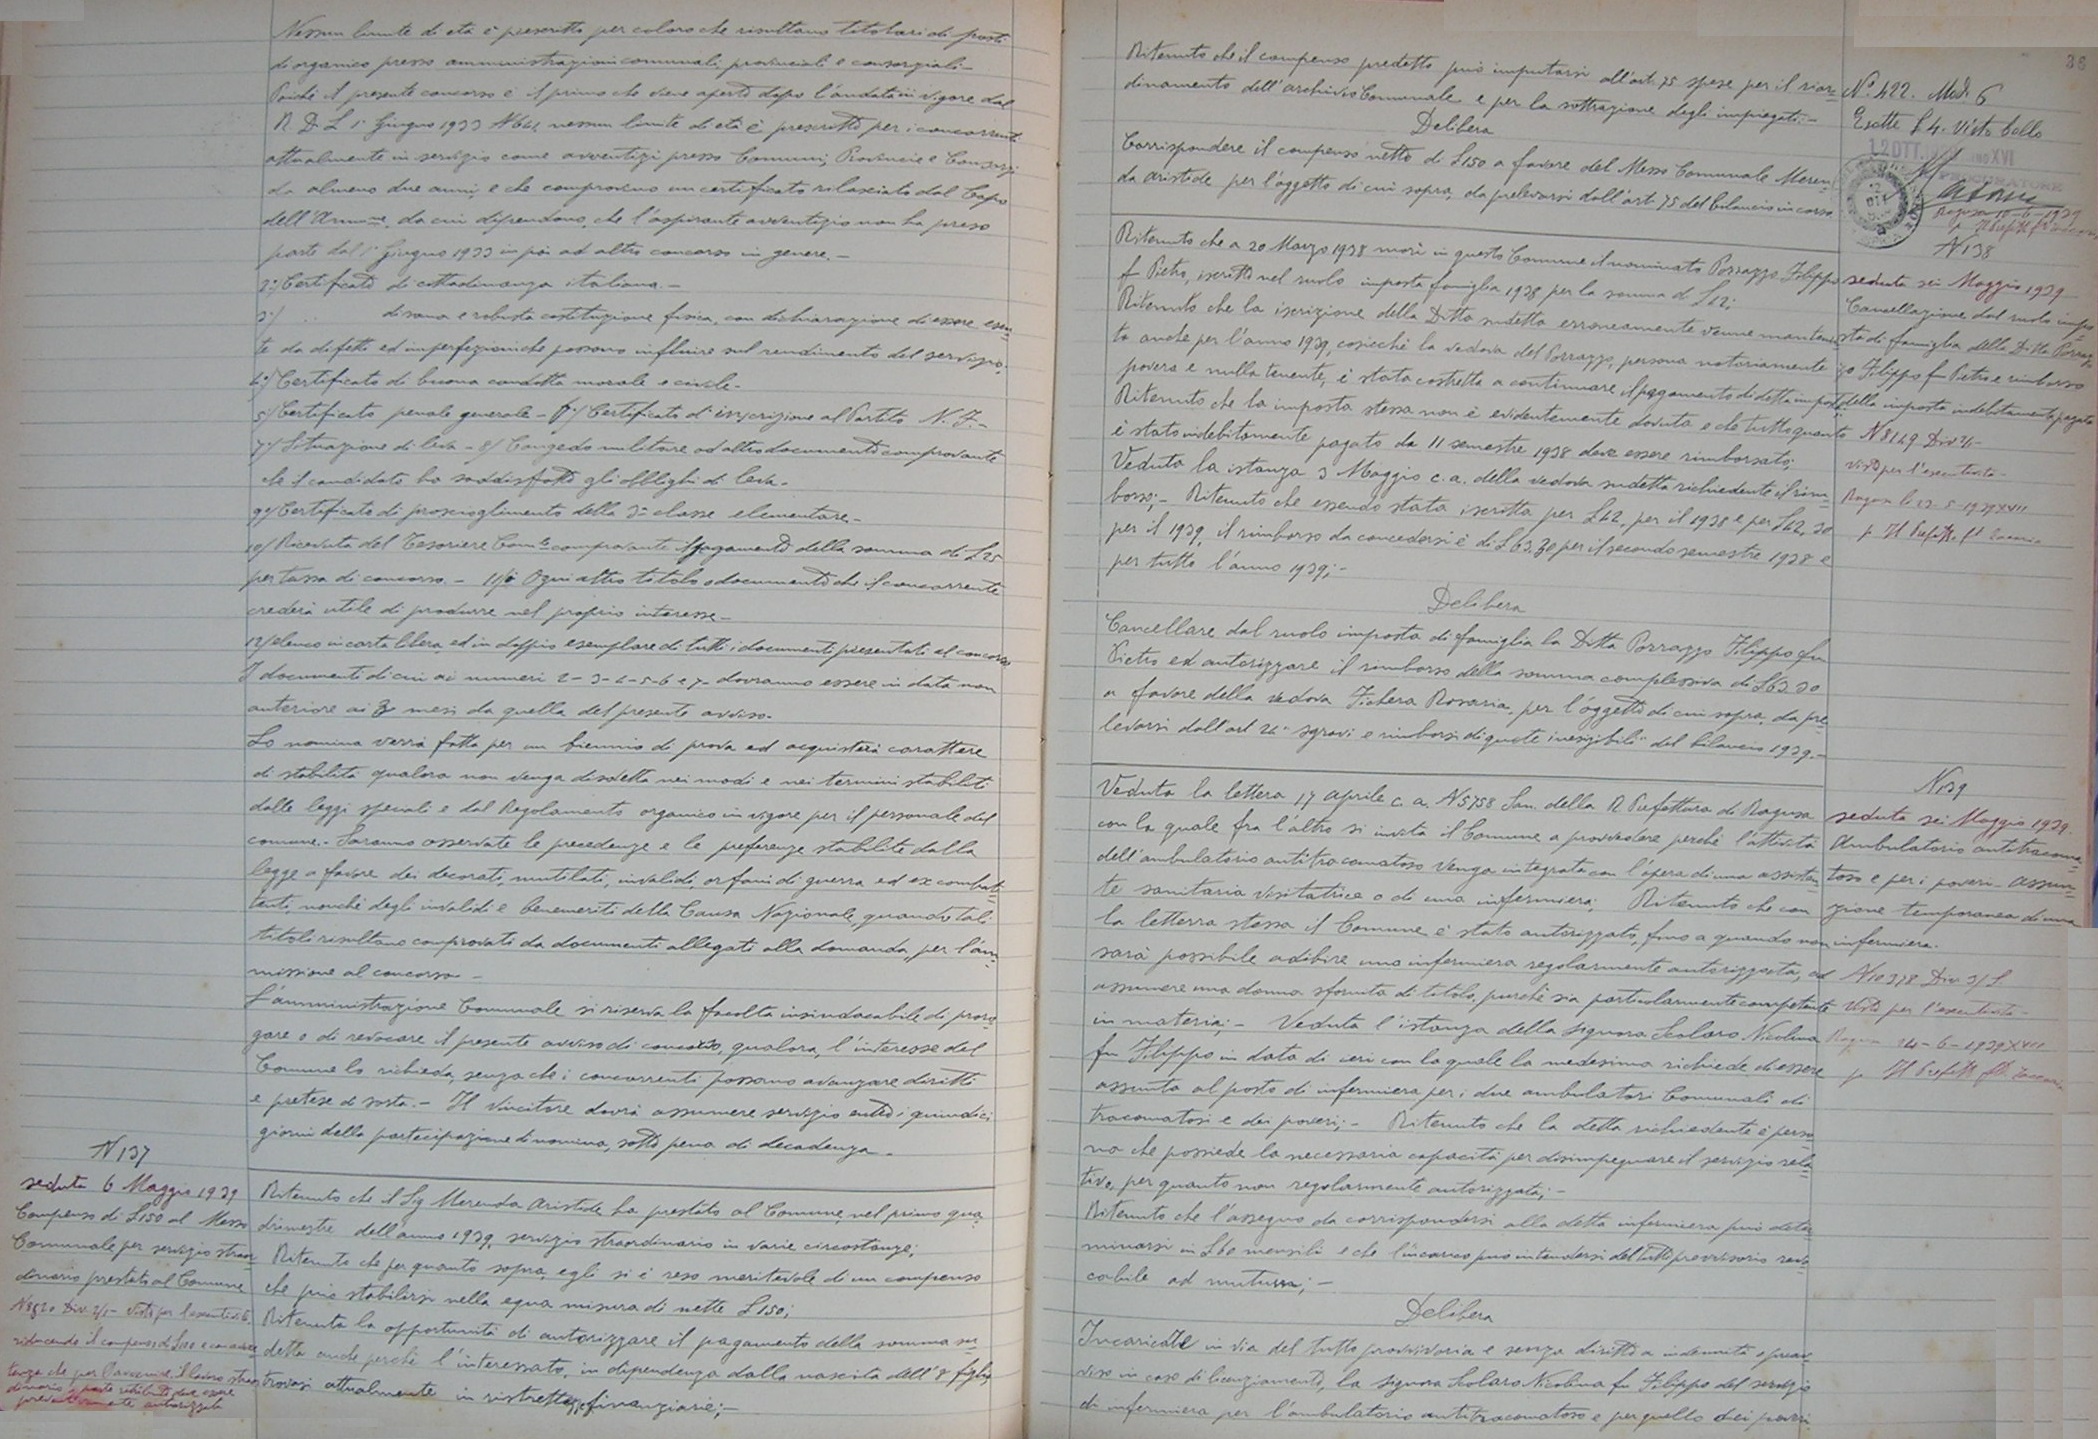 Nessun limite di età è prescritto per coloro che risultano titolari di posti
di organico presso amministrazioni comunali, provinciali e consorziali.
Poichè il presente concorso è il primo che viene aperto dopo l'andata in vigore del
R. D. L. 1° Giugno 1933 N 641 nessun limite di età è prescritto per i concorrenti
attualmente in servizio come avventizi presso Comuni, Provincie e Consorzi
da almeno due anni, e che comprovino un certificato rilasciato dal Capo
dell'Amm.ne da cui dipendono, che l'aspirante avventizio non ha preso
parte dal 1° Giugno 1933 in poi ad altro concorso in genere. -
2°/ Certificato di cittadinanza italiana. -
3°/ .. di sana e robusta costituzione fisica, con dichiarazione di essere esen=
te da difetti ed imperfezioni che possono influire sul rendimento del servizio.
4°/ Certificato di buona condotta morale e civile. -
5°/ Certificato penale generale - 6°/ Certificato d'inscrizione al Partito N. F. -
7°/ Situazione di leva - 8/ Congedo militare od altro documento comprovante
che il candidato ha soddisfatto gli obblighi di leva. -
9°/ Certificato di proscioglimento della 3ª classe elementare. -
10/ Ricevuta del Tesoriere Com.le comprovante il pagamento della somma di £ 25
per tassa di concorso. - 11/° Ogni altro titolo o documento che il concorrente
crederà utile di produrre nel proprio interesse. -
12/ elenco in carta libera ed in doppio esemplare di tutti i documenti presentati al concorso
I documenti di cui ai numeri 2-3-4-5-6 e 7- dovranno essere in data non
anteriore ai 3 mesi da quella del presente avviso.
La nomina verrà fatta per un biennio di prova ed acquisterà carattere
di stabilità qualora non venga disdetta nei modi e nei termini stabiliti
dalle leggi speciali e dal Regolamento organico in vigore per il personale del
comune. - Saranno osservate le precedenze e le preferenze stabilite dalla
legge a favore dei decorati, mutilati, invalidi, orfani di guerra ed ex combat=
tenti, nonchè degli invalidi e benemeriti della Causa Nazionale, quando tali
titoli risultano comprovati da documenti allegati alla domanda, per l'am=
missione al concorso -
L'amministrazione Comunale si riserva la facoltà insindacabile di proro=
gare o di revocare il presente avviso di concorso, qualora, l'interesse del
Comune lo richieda, senza che i concorrenti possano avanzare diritti
e pretese di sorta. - Il vincitore dovrà assumere servizio entro i quindici
giorni della partecipazione di nomina, sotto pena di decadenza. -
N 137
seduta 6 Maggio 1939
Compenso di £ 150 al Messo
Comunale per servizio straor
dinario prestato al Comune
Div. 2/1 - Visto per l'esecutività
riducendo il compenso di £ 100 e con avver
tenza che per l'avvenire il lavoro straor
dinario
preventivamente autorizzato
Ritenuto che il Sig Merenda Aristide ha prestato al Comune, nel primo qua
drimestre dell'anno 1939, servizio straordinario in varie circostanze;
Ritenuto che per quanto sopra, egli si è reso meritevole di un compenso
che può stabilirsi nella equa misura di nette £ 150;
Ritenuta la opportunità di autorizzare il pagamento della somma su
detta anche perchè l'interessato, in dipendenza dalla nascita dell'8° figlio,
trovasi attualmente in ristrettezze finanziarie; -
36
Ritenuto che il compenso predetto può imputarsi all'art. 75 spese per il rior=
dinamento dell'archivio Comunale e per la sottrazione degli impiegati. -
Delibera
Corrispondere il compenso netto di £ 150 a favore del Messo Comunale Meren=
da Aristide per l'oggetto di cui sopra, da prelevarsi dall'art. 75 del bilancio in corso
N° 422. Mod. 6
Esatte £ 4. Visto bollo
12 OTT. XVI
PROCURATORE
Ragusa 10-6-1939
p. Il Prefetto
N 138
seduta sei Maggio 1939
Cancellazione dal ruolo impo
sta di famiglia della Ditta Porraz
zo Filippo fu Pietro e rimborso
della imposta indebitamente pagata
N 8149 Div 2/1
Visto per l'esecutività -
Ragusa li 23-5-1939 XVII
p. Il Prefetto
Ritenuto che a 20 Marzo 1938 morì in questo Comune il nominato Porrazzo Filippo
fu Pietro, iscritto nel ruolo imposta famiglia 1938 per la somma di £ 42;
Ritenuto che la iscrizione della Ditta sudetta erroneamente venne mantenu=
ta anche per l'anno 1939, cosicchè la vedova del Porrazzo, persona notoriamente
povera e nulla tenente, è stata costretta a continuare il pagamento di detta imposta
Ritenuto che la imposta stessa non è evidentemente dovuta e che tutto quanto
è stato indebitamente pagato da II semestre 1938 deve essere rimborsato;
Veduta la istanza 3 Maggio c. a. della vedova sudetta richiedente il rim=
borso; - Ritenuto che essendo stata iscritta per £ 42, per il 1938 e per £ 42,30
per il 1939, il rimborso da concedersi è di £ 63,30 per il secondo semestre 1938 e
per tutto l'anno 1939; -
Delibera
Cancellare dal ruolo imposta di famiglia la Ditta Porrazzo Filippo fu
Pietro ed autorizzare il rimborso della somma complessiva di £ 63,30
a favore della vedova Fichera Rosaria, per l'oggetto di cui sopra, da pre=
levarsi dall'art 24 "sgravi e rimborsi di quote inesigibili" del bilancio 1939. -
N 139
seduta sei Maggio 1939.
Ambulatorio antitracoma=
toso e per i poveri - assun=
zione temporanea di una
infermiera.
N 10378 Div 3/S
Visto per l'esecutività -
Ragusa 14-6-1939 XVII
p. Il Prefetto
Veduta la lettera 17 aprile c. a. N 5758 San. della R Prefettura di Ragusa
con la quale fra l'altro si invita il Comune a provvedere perchè l'attività
dell'ambulatorio antitracomatoso venga integrata con l'opera di una assisten
te sanitaria visitatrice o di una infermiera; Ritenuto che con
la letterra stessa il Comune è stato autorizzato, fino a quando non
sarà possibile adibire una infermiera regolarmente autorizzata, ad
assumere una donna sfornita di titolo, purchè sia particolarmente competente
in materia; - Veduta l'istanza della signora Scolaro Nicolina
fu Filippo in data di ieri con la quale la medesima richiede di essere
assunta al posto di infermiera per i due ambulatori Comunali di
tracomatosi e dei poveri; - Ritenuto che la detta richiedente è perso
na che possiede la necessaria capacità per disimpegnare il servizio rela
tivo, per quanto non regolarmente autorizzata; -
Ritenuto che l'assegno da corrispondersi alla detta infermiera può deter
minarsi in £ 60 mensili e che l'incarico può intendersi del tutto provvisorio revo
cabile ad nutum; -
Delibera
Incaricare in via del tutto provvisoria e senza diritto a indennità o preav
viso in caso di licenziamento, la signora Scolaro Nicolina fu Filippo del servizio
di infermiera per l'ambulatorio antitracomatoso e per quello dei poveri